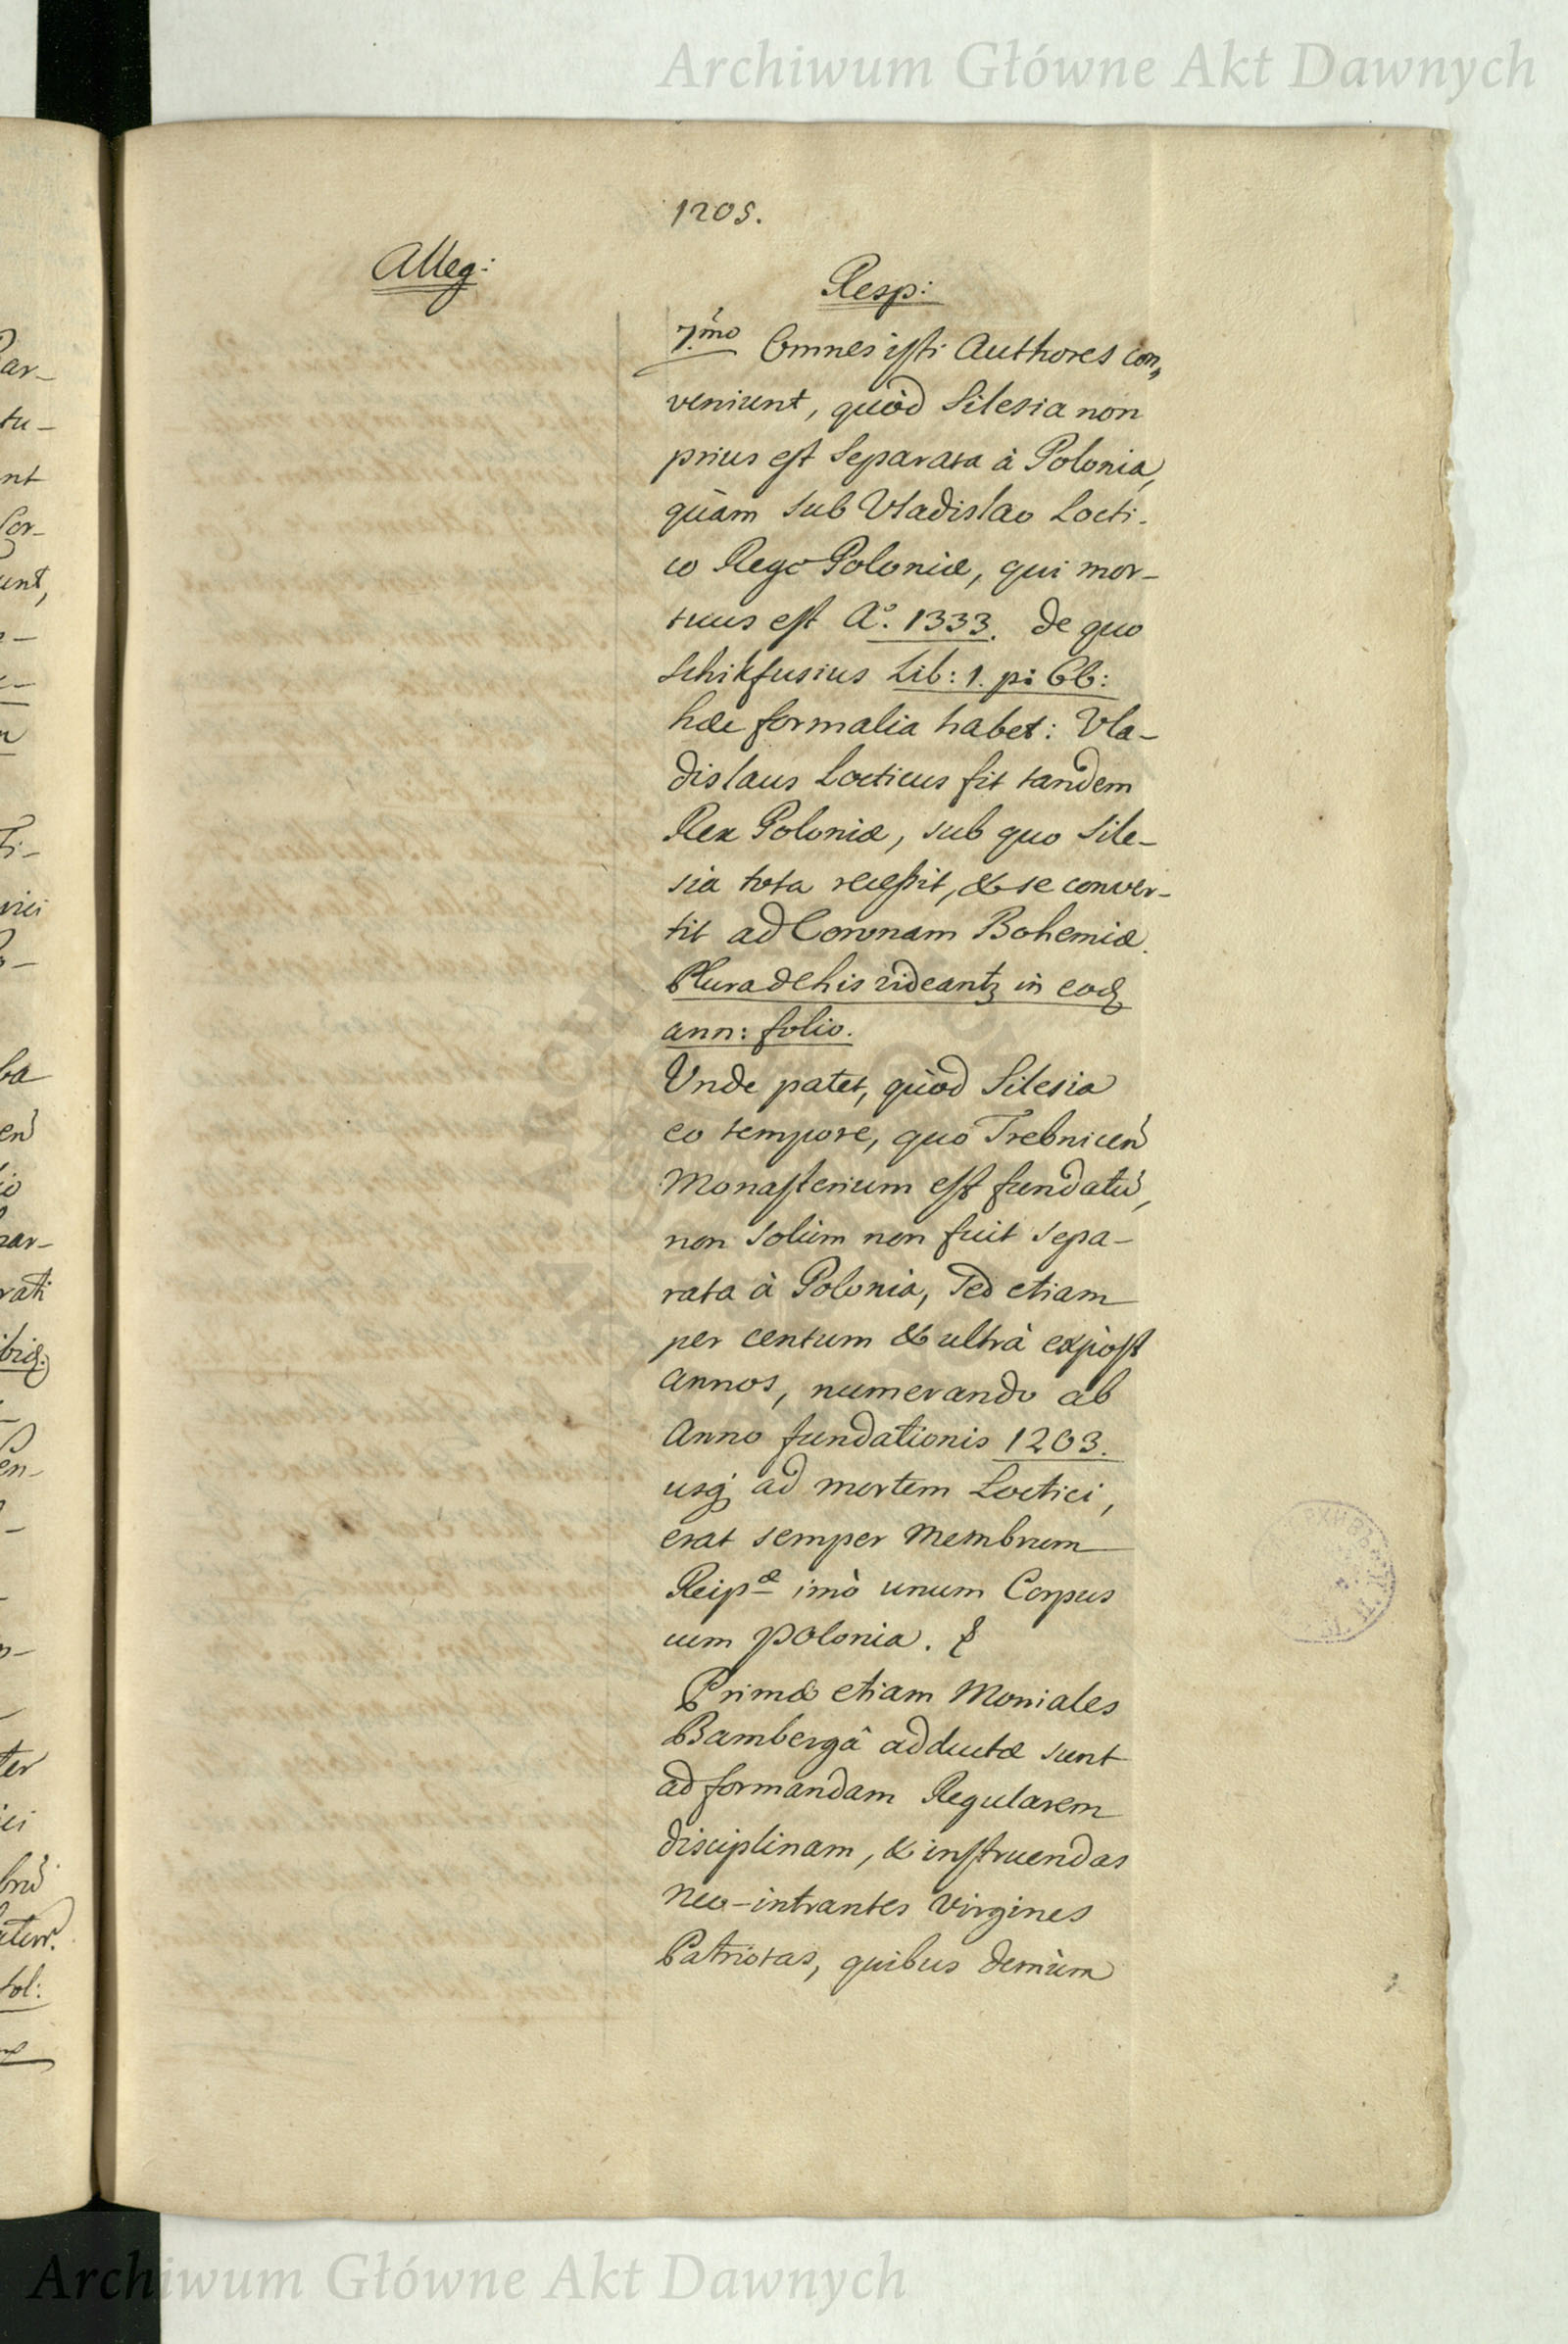 Archiwum Główne Akt Dawnych
1205.
Alleg:
Resp:
7.mo Omnes isti Authores con„
veniunt, quòd Silesia non
prius est Separata à Polonia,
quàm sub Vladislao Locti-
co Rege Poloniæ, qui mor-
tuus est Aº. 1333. de quo
Schikfusius Lib: 1. p: 66:
hæc formalia habet: Vla-
dislaus Locticus fit tandem
Rex Poloniæ, sub quo Sile-
sia tota recessit, & se conver-
tit ad Coronam Bohemiæ.
Plura de his videantʒ in eodʒ
ann: folio.
Unde patet, quòd Silesia
eo tempore, quo Trebnicen̄
Monasterium est fundatū,
non solùm non fuit sepa-
rata à Polonia, sed etiam
per centum & ultrà expòst
annos, numerando ab
Anno fundationis 1203.
usqʒ ad mortem Loctici,
erat semper Membrum
Reipæ imò unum Corpus
cum Polonia.
Primæ etiam Moniales
Bambergâ adductæ sunt
ad formandam Regularem
disciplinam, & instruendas
neo-intrantes Virgines
Patriotas, quibus demùm
Archiwum Główne Akt Dawnych